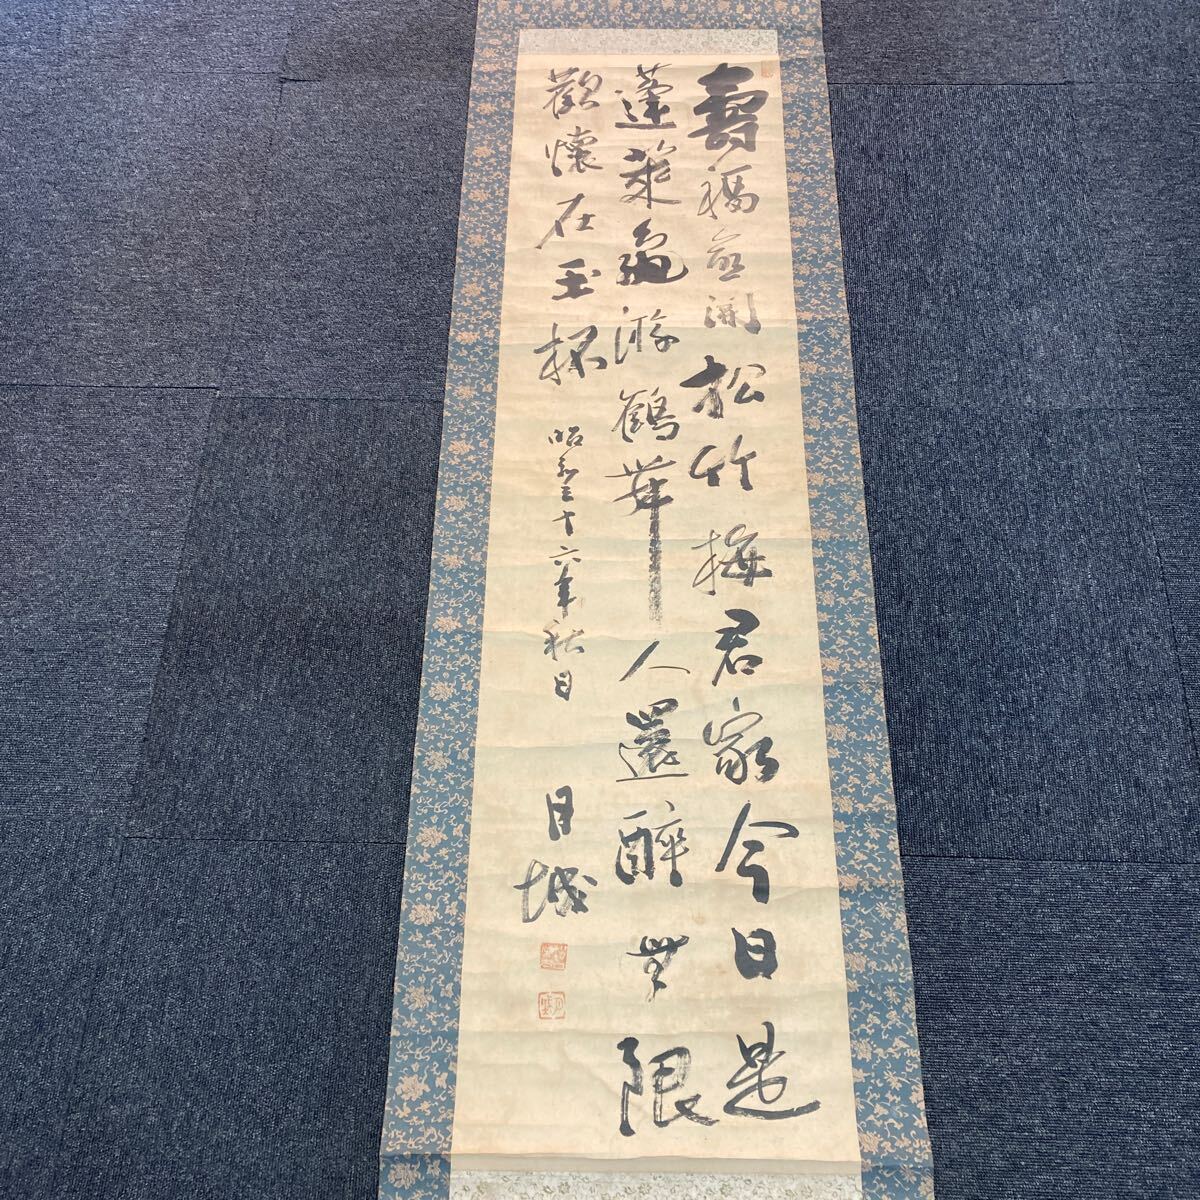 壽福並開松竹梅君家今日是
蓬萊龜游鶴舞人還醉無限
歡懷在玉杯 昭和三十六年秋日 月城